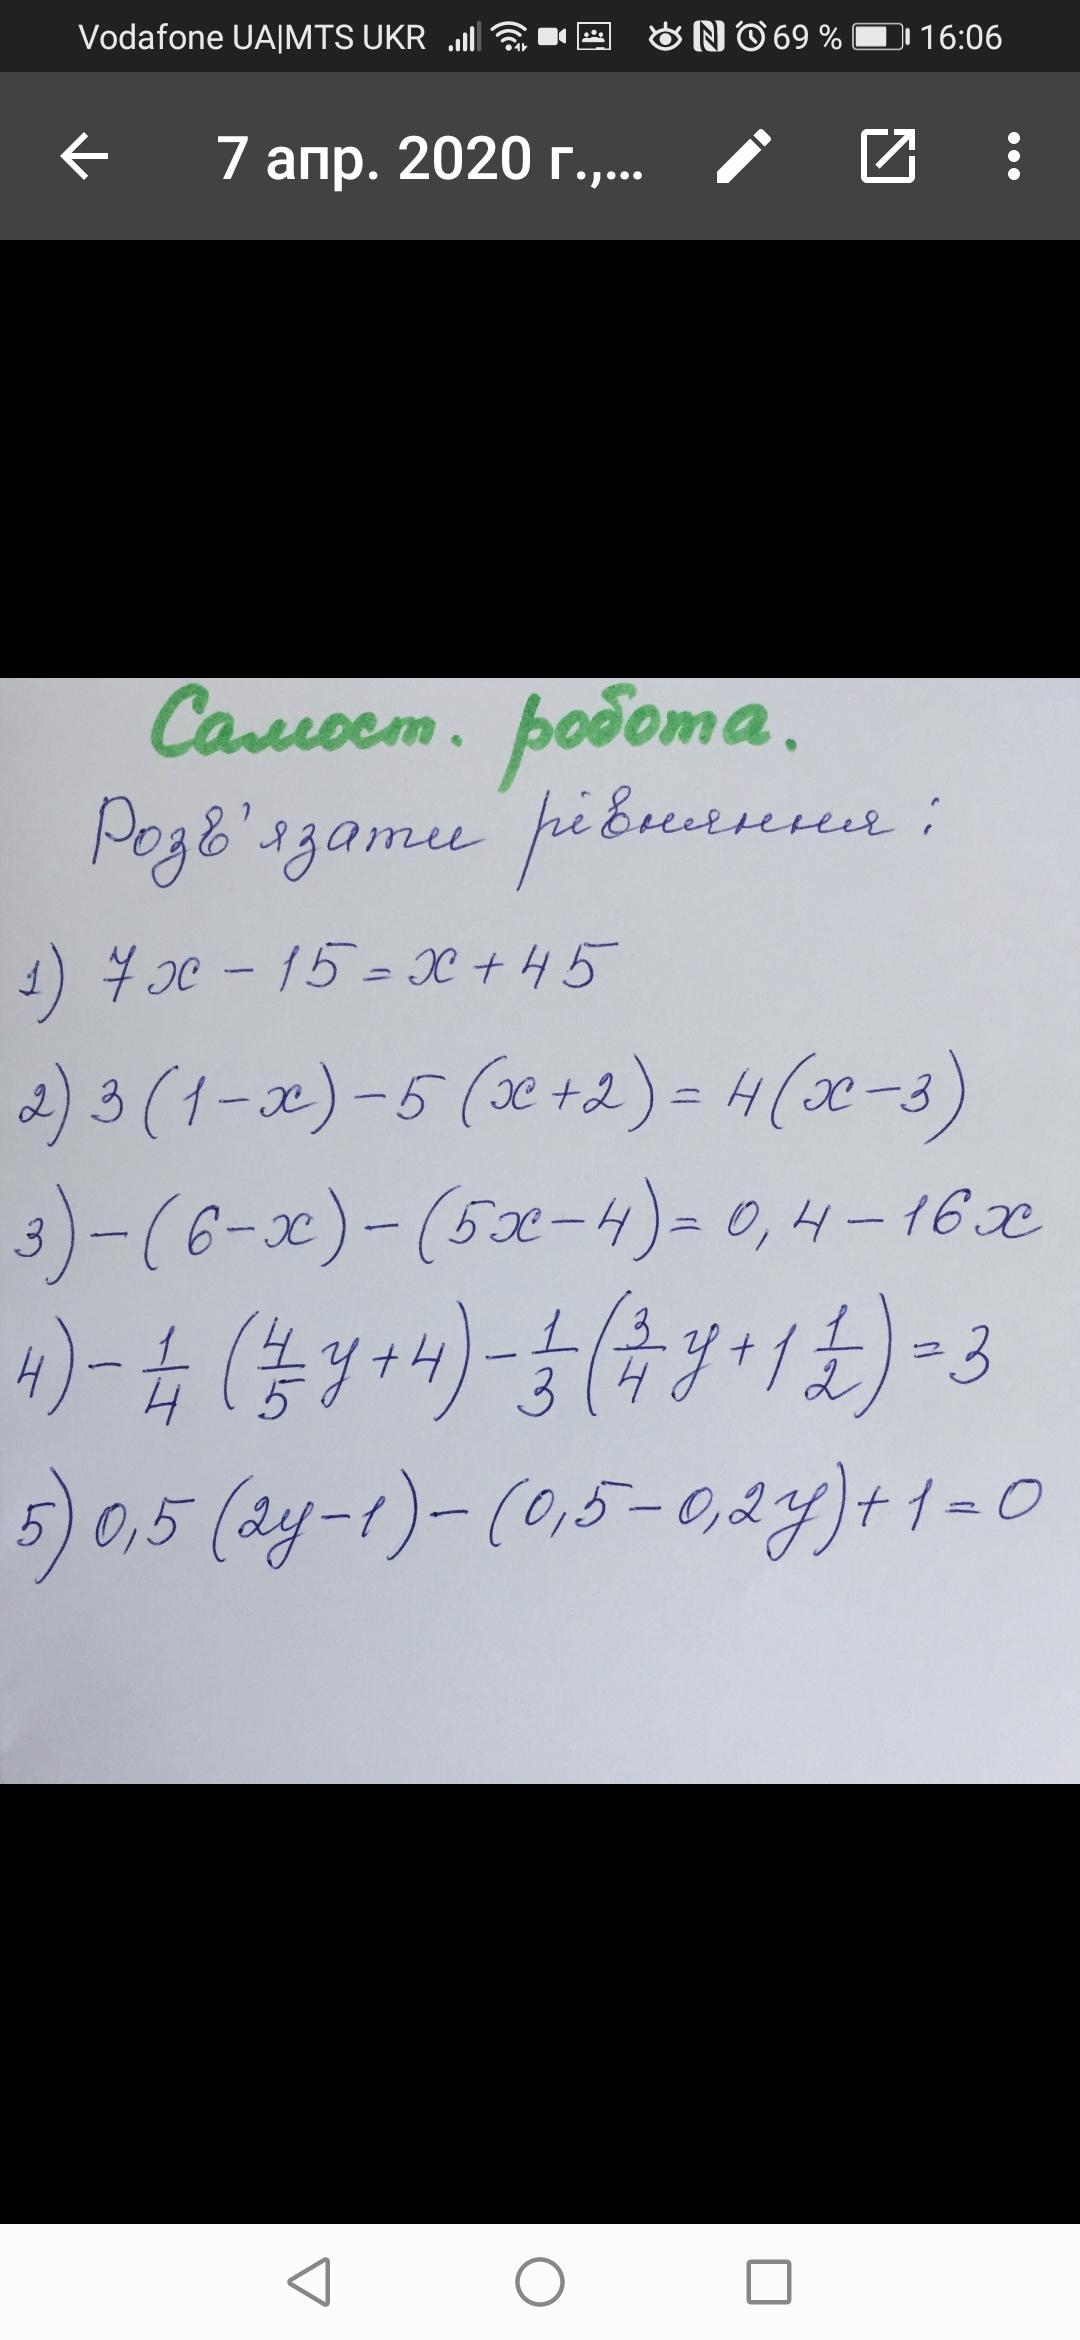 Vodafone UA|MTS UKR 69 % 16:06
7 апр. 2020 г.,...
Самост. робота.
Розв'язати рівняння:
1) 7x - 15 = x + 45
2) 3(1-x) - 5(x+2) = 4(x-3)
3) -(6-x) - (5x-4) = 0,4 - 16x
4) - 1/4 (4/5 y + 4) - 1/3 (3/4 y + 1 1/2) = 3
5) 0,5(2y-1) - (0,5-0,2y) + 1 = 0